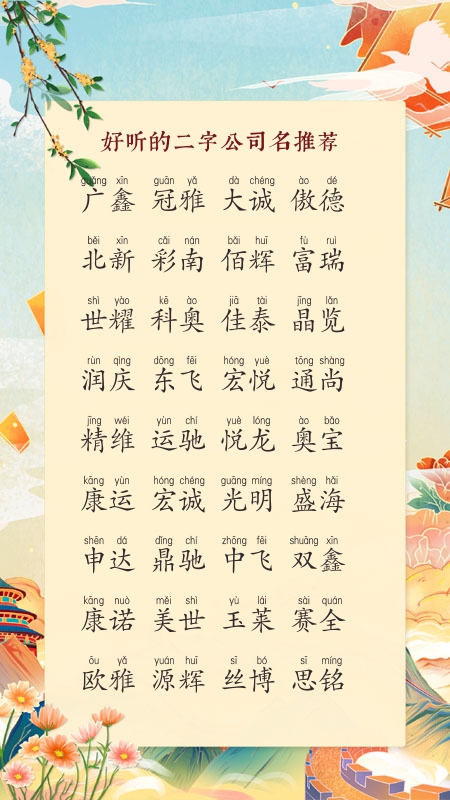 好听的二字公司名推荐
guǎng xīn guān yǎ dà chéng ào dé
广鑫 冠雅 大诚 傲德
běi xīn cǎi nán bǎi huī fù ruì
北新 彩南 佰辉 富瑞
shì yào kē ào jiā tài jīng lǎn
世耀 科奥 佳泰 晶览
rùn qìng dōng fēi hóng yuè tōng shàng
润庆 东飞 宏悦 通尚
jīng wéi yùn chí yuè lóng ào bǎo
精维 运驰 悦龙 奥宝
kāng yùn hóng chéng guāng míng shèng hǎi
康运 宏诚 光明 盛海
shēn dá dǐng chí zhōng fēi shuāng xīn
申达 鼎驰 中飞 双鑫
kāng nuò měi shì yù lái sài quán
康诺 美世 玉莱 赛全
ōu yǎ yuán huī sī bó sī míng
欧雅 源辉 丝博 思铭